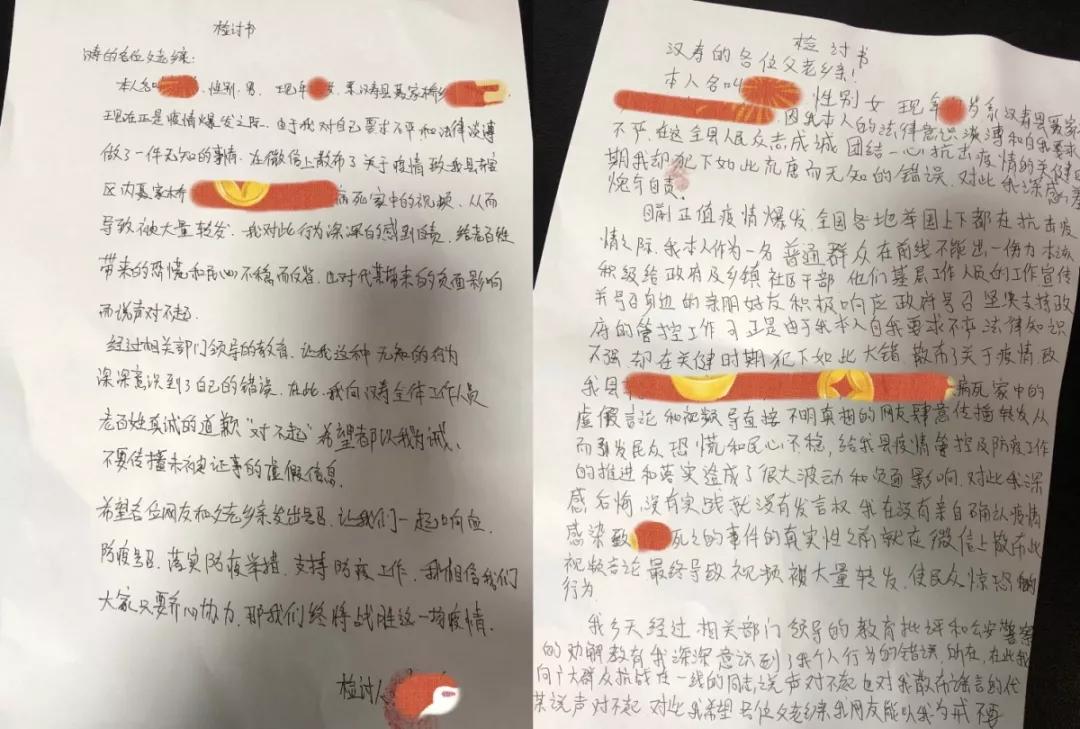 检讨书
汉寿的各位父老乡亲:
本人名叫 性别.男. 现年 岁.系汉寿县聂家桥乡
现在正是疫情爆发之际. 由于我对自己要求不严和法律淡薄
做了一件无知的事情. 在微信上散布了关于疫情致我县
区内聂家桥 病死家中的视频. 从而
导致被大量转发. 我对此行为深深的感到自责. 给老百姓
带来的恐慌和民心不稳而 也对代某带来的负面影响
而说声对不起.
经过相关部门领导的教育. 让我这种无知的行为
深深意识到了自己的错误. 在此. 我向汉寿全体工作人员
老百姓真诚的道歉"对不起"希望都以我为诫、
不要传播未被证事的虚假信息.
希望各位网友和父老乡亲发出号召. 让我们一起响应
防疫号召. 落实防疫举措. 支持防疫工作. 我相信我们
大家只要齐心协力. 那我们终将战胜这一场疫情.
检讨人
检讨书
汉寿的各位父老乡亲!
本人名叫 性别女 现年 岁系汉寿县聂家
因我本人的法律意识淡薄和自我要求
不严,在这全县人民众志成诚 团结一心抗击疫情的关健
期我却犯下如此荒唐而无知的错误.对此我深感羞
愧与自责
目前正值疫情爆发,全国各地举国上下都在抗击疫
情之际.我本人作为一名普通群众在前线不能出一份力本该
积级给政府及乡镇社区干部 他们基层工作人员的工作宣传
并号召身边的亲朋好友积极响应政府号召坚决支持政
府的管控工作 可正是由于我本人自我要求不严 法律知识
不强 却在关健时期犯下如此大错 散布了关于疫情致
我县 病死家中的
虚假言论和视频导直接不明真相的网友肆意传播转发从
而引发民众恐慌和民心不稳,给我县疫情管控及防疫工作
的推进和落实造成了很大波动和负面影响.对此我深
感后悔,没有实践就没有发言权.我在没有亲自确认疫情
感染致 死亡的事件的真实性之前就在微信上散布此
视频言论 最终导致视频被大量转发,使民众惊恐的
行为
我今天经过相关部门领导的教育批评和公安警察
的劝解教育我深深意识到了我个人行为的错误,所在,在此我
向广大群众抗战在一线的同志,说声对不起也对我散布谣言的代
某说声对不起 对此我希望各位父老乡亲我网友能以我为戒 不要